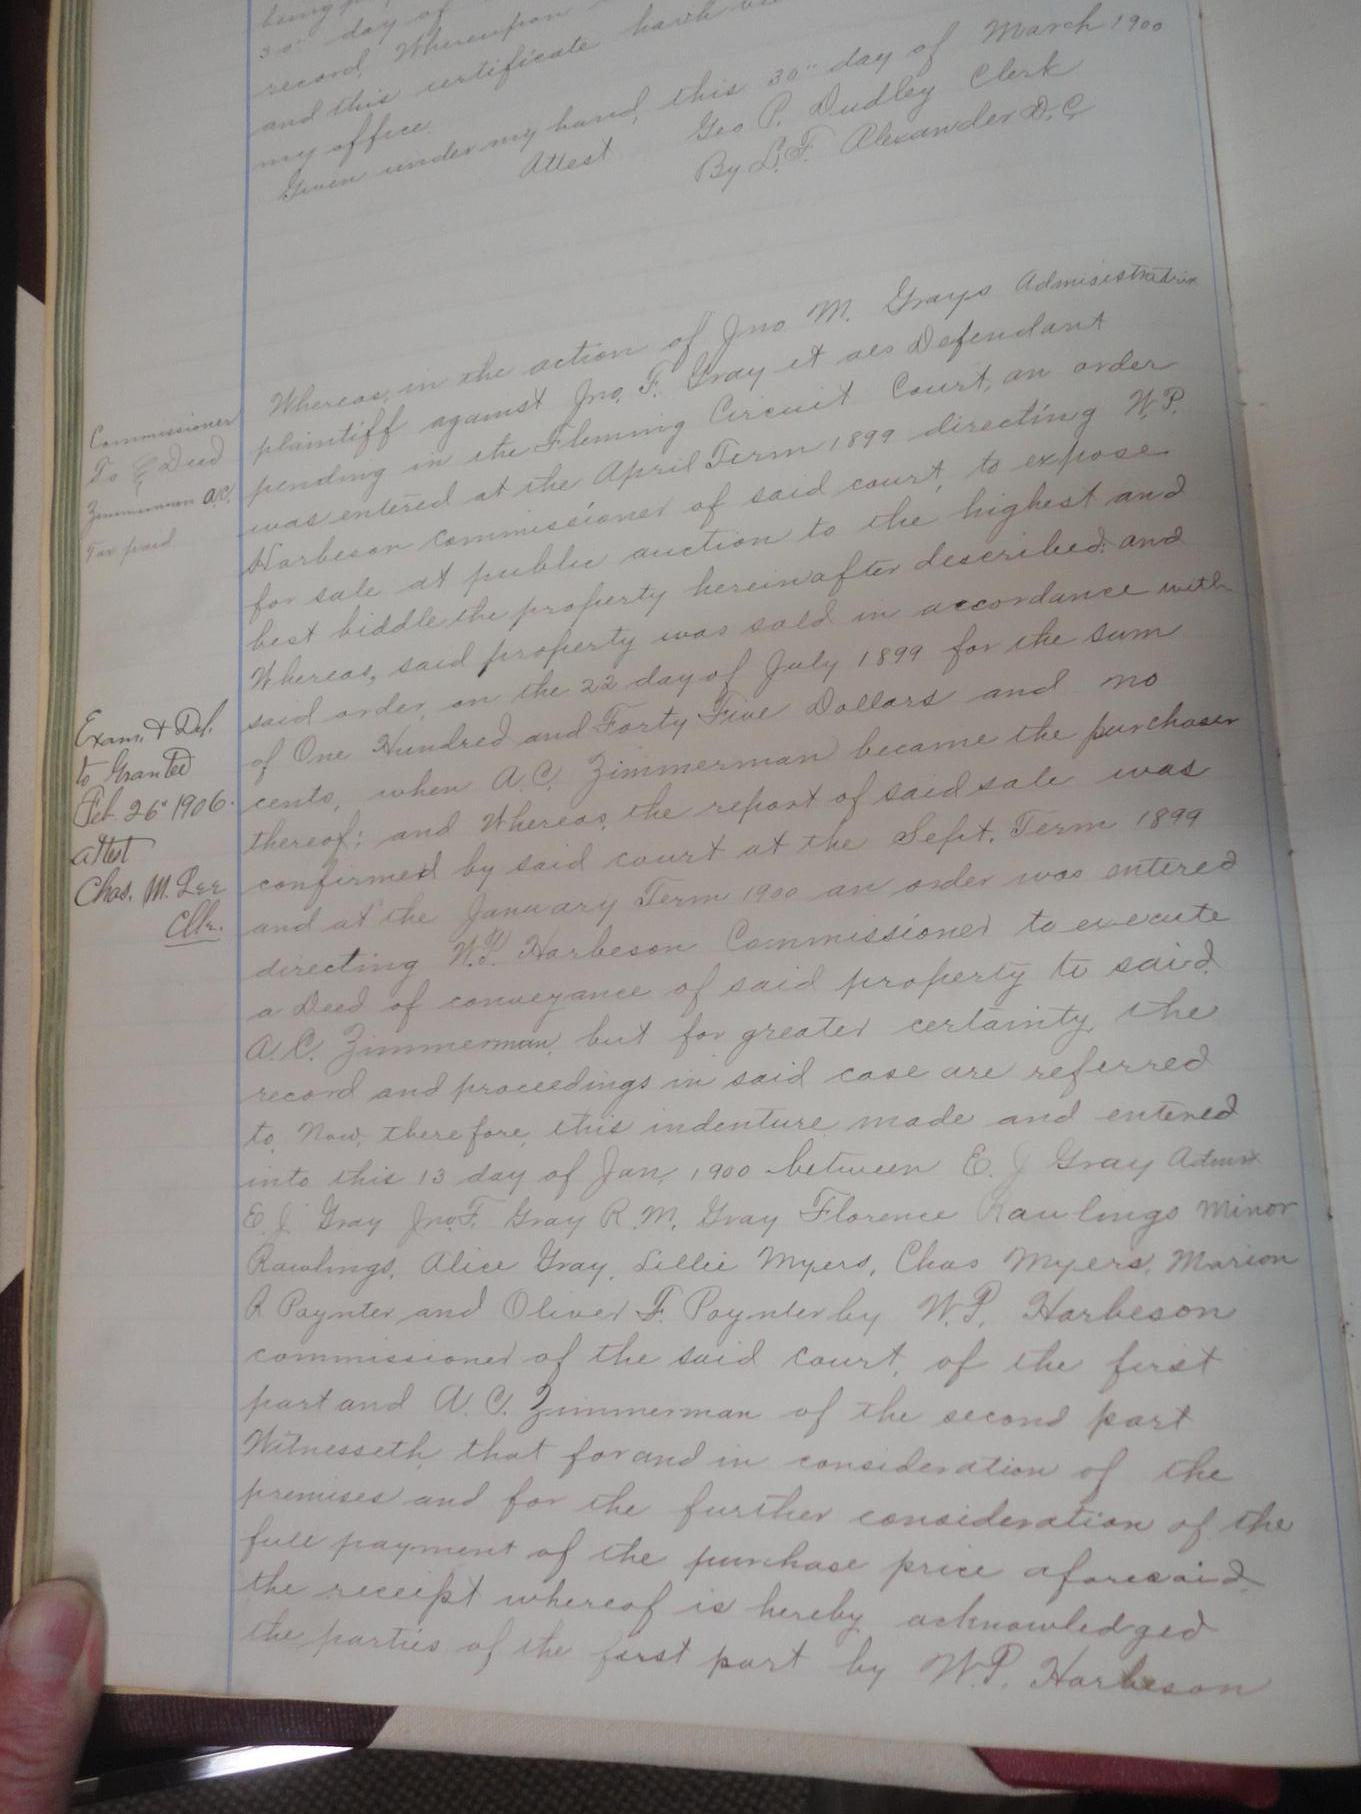 30" day of
record, Whereupon
and this certificate have
my office.
Given under my hand, this 30" day of March 1900
Attest Geo P. Dudley Clerk
By L.F. Alexander D.C
Whereas, in the action of Jno M. Grays Administratrix
plaintiff against Jno. F. Gray et als Defendant
pending in the Fleming Circuit Court, an order
was entered at the April Term 1899 directing W.P.
Harbeson commissioner of said court, to expose
for sale at public auction to the highest and
best biddle the property hereinafter described: and
Whereas, said property was sold in accordance with
said order, on the 22 day of July 1899 for the sum
of One Hundred and Forty Five Dollars and no
cents, when A.C. Zimmerman became the purchaser
thereof; and Whereas, the report of said sale was
confirmed by said court at the Sept. Term 1899
and at the January Term 1900 an order was entered
directing W.P. Harbeson Commissioner to execute
a Deed of conveyance of said property to said
A.C. Zimmerman, but for greater certainty, the
record and proceedings in said case are referred
to, Now, therefore, this indenture made and entered
into this 13 day of Jan, 1900 between E. J Gray Admx
E J. Gray Jno.F. Gray R.M. Gray Florence Rawlings Minor
Rawlings, Alice Gray, Lillie Myers, Chas Myers, Marion
R Paynter and Oliver F. Paynter by W.P. Harbeson
commissioner of the said court, of the first
part and A.C. Zimmerman of the second part
Witnesseth, that for and in consideration of the
premises and for the further consideration of the
full payment of the purchase price aforesaid
the receipt whereof is hereby acknowledged
the parties of the first part by W.P. Harbeson
Commissioner
To Deed
Zimmerman A.C.
Tax paid
Exam. & Del.
to Grantee
Feb. 26" 1906.
attest
Chas. M. Lee
Clk.